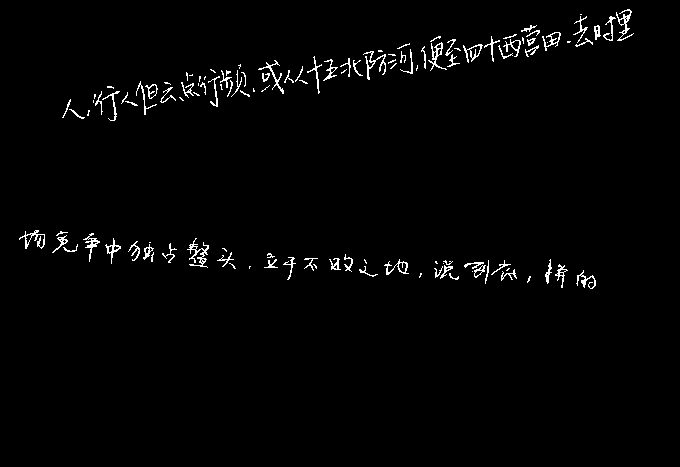 人,行人但云点行频.或从十五北防河,便至四十西营田.去时里
场竞争中独占鳌头.立于不败之地,说到底,拼的